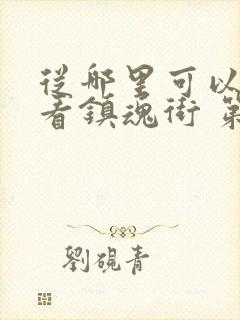 從哪里可以
看鎮魂街 第
劉硯青